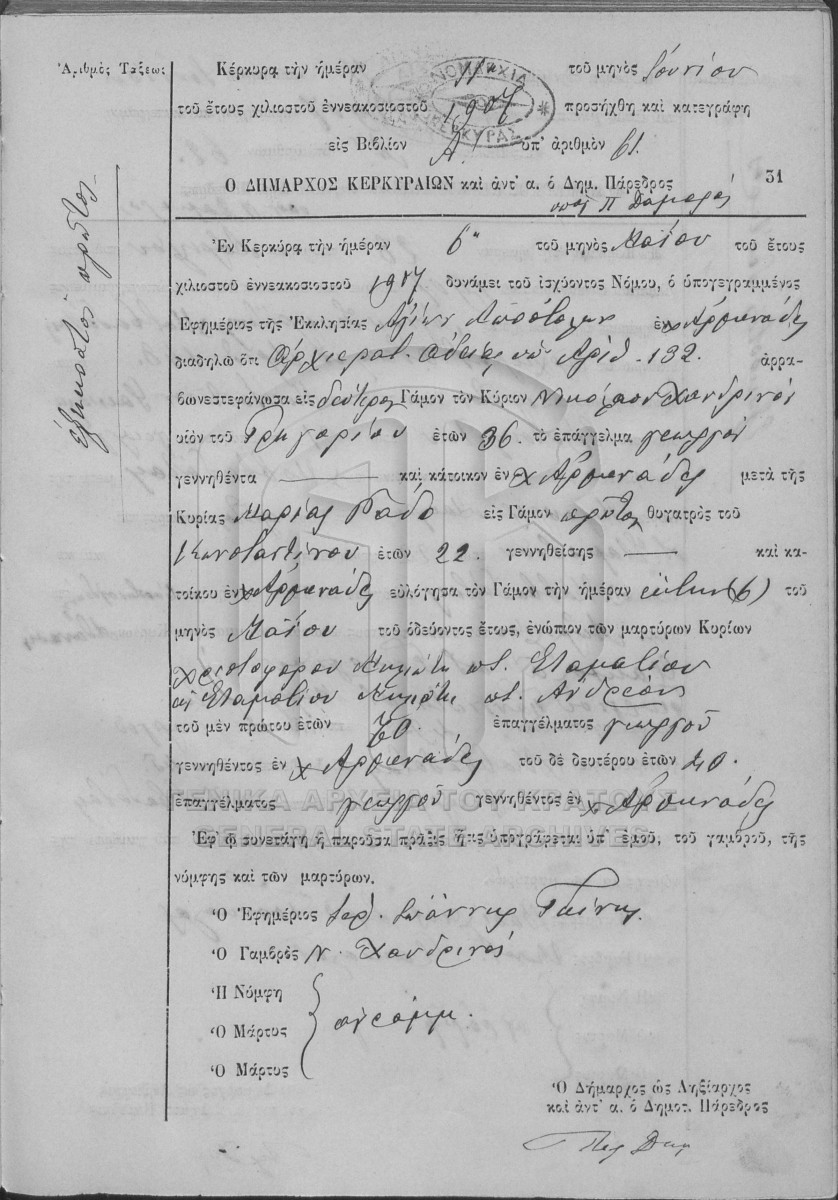 Ἀριθμὸς Τάξεως
Κέρκυρα τὴν ἡμέραν 11ῃ τοῦ μηνὸς Ἰουνίου
τοῦ ἔτους χιλιοστοῦ ἐννεακοσιοστοῦ 1907 προσήχθη καὶ κατεγράφη
εἰς Βιβλίον Α' ὑπ' ἀριθμὸν 61.
Ο ΔΗΜΑΡΧΟΣ ΚΕΡΚΥΡΑΙΩΝ καὶ ἀντ' α. ὁ Δημ. Πάρεδρος 31
ΝΟΜΑΡΧΙΑ ΚΕΡΚΥΡΑΣ
ἑξηκοστὸς πρῶτος
Ἐν Κερκύρᾳ τὴν ἡμέραν 6ῃ τοῦ μηνὸς Μαΐου τοῦ ἔτους
χιλιοστοῦ ἐννεακοσιοστοῦ 1907 δυνάμει τοῦ ἰσχύοντος Νόμου, ὁ ὑπογεγραμμένος
Ἐφημέριος τῆς Ἐκκλησίας Ἁγίων Ἀποστόλων ἐν χ Ἀρμενάδες
διαδηλῶ ὅτι Ἀρχιερατ. ἀδείας ὑπ' Ἀριθ. 132. ἀρρα-
βωνεστεφάνωσα εἰς δεύτερον Γάμον τὸν Κύριον Νικόλαον Χανδρινόν
υἱὸν τοῦ Γρηγορίου ἐτῶν 36. τὸ ἐπάγγελμα γεωργόν
γεννηθέντα καὶ κάτοικον ἐν χ Ἀρμενάδες μετὰ τῆς
Κυρίας Μαρίας Ράδο εἰς Γάμον πρῶτον θυγατρὸς τοῦ
Κωνσταντίνου ἐτῶν 22. γεννηθείσης καὶ κα-
τοίκου ἐν χ Ἀρμενάδες εὐλόγησα τὸν Γάμον τὴν ἡμέραν ἕκτην (6) τοῦ
μηνὸς Μαΐου τοῦ ὁδεύοντος ἔτους, ἐνώπιον τῶν μαρτύρων Κυρίων
Χριστοφόρου Σταματίου
Σταματίου Ἀνδρέου
τοῦ μὲν πρώτου ἐτῶν 70. ἐπαγγέλματος γεωργοῦ
γεννηθέντος ἐν χ Ἀρμενάδες τοῦ δὲ δευτέρου ἐτῶν 40.
ἐπαγγέλματος γεωργοῦ γεννηθέντος ἐν χ Ἀρμενάδες
ΓΕΝΙΚΑ ΑΡΧΕΙΑ ΤΟΥ ΚΡΑΤΟΥΣ
GENERAL STATE ARCHIVES
Ἐφ' ᾧ συνετάγη ἡ παροῦσα πρᾶξις ἥτις ὑπογράφεται ὑπ' ἐμοῦ, τοῦ γαμβροῦ, τῆς
νύμφης καὶ τῶν μαρτύρων.
Ὁ Ἐφημέριος Ἰερ. Ἰωάννης
Ὁ Γαμβρὸς Ν. Χανδρινός
Ἡ Νύμφη
Ὁ Μάρτυς ἀγράμμ.
Ὁ Μάρτυς
Ὁ Δήμαρχος ὡς Ληξίαρχος
καὶ ἀντ' α. ὁ Δημοτ. Πάρεδρος